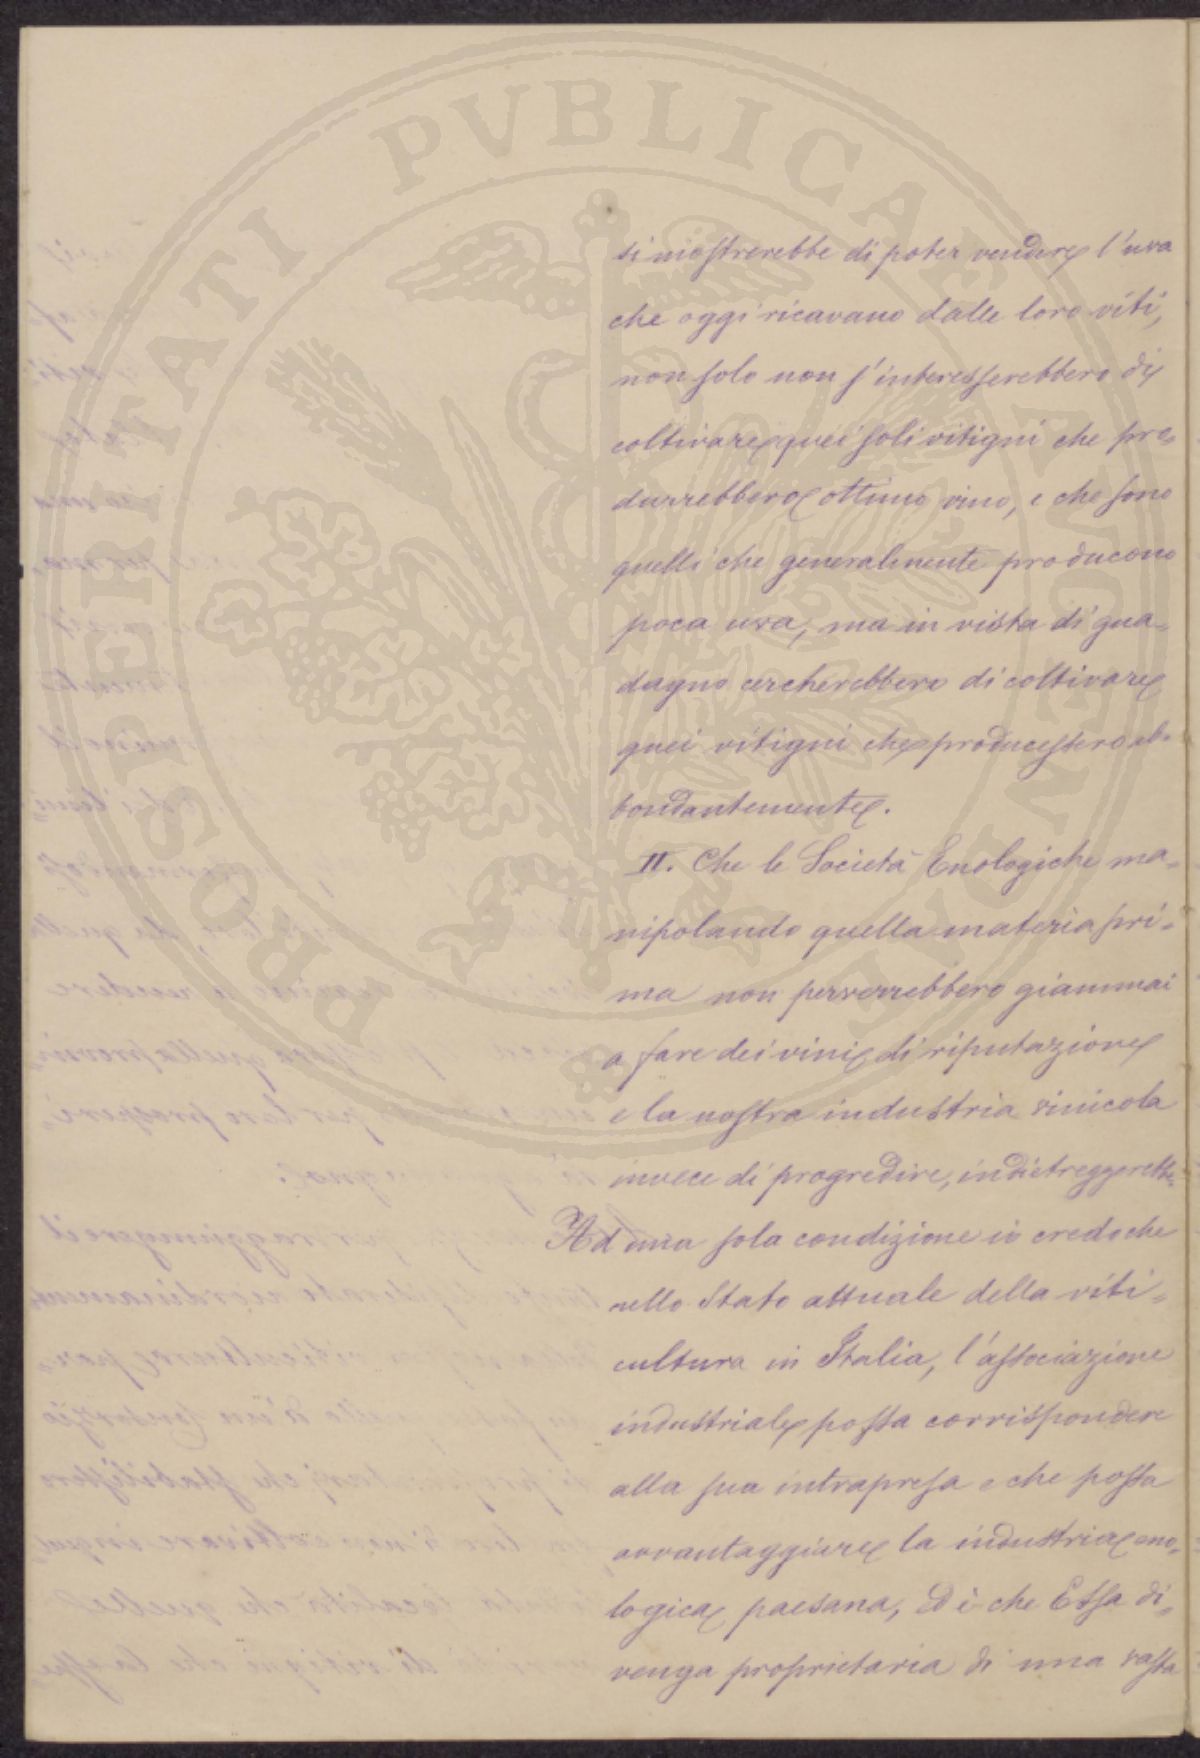 PROSPERITATI PVBLICAE AVGENDAE
si mostrerebbe di poter vendere l'uva
che oggi ricavano dalle loro viti,
non solo non s'interesserebbero di
coltivare quei soli vitigni che pro=
durrebbero ottimo vino, e che sono
quelli che generalmente producono
poca uva, ma in vista di gua=
dagno cercherebbero di coltivare
quei vitigni che producessero ab=
bondantemente.
II. Che le Società Enologiche ma=
nipolando quella materia pri=
ma non perverrebbero giammai
a fare dei vini di riputazione
e la nostra industria vinicola
invece di progredire, indietreggerebbe.
Ad una sola condizione io credo che
nello Stato attuale della viti=
cultura in Italia, l'associazione
industriale possa corrispondere
alla sua intrapresa e che possa
avvantaggiare la industria eno=
logica paesana, ed è che Essa di=
venga proprietaria di una vasta